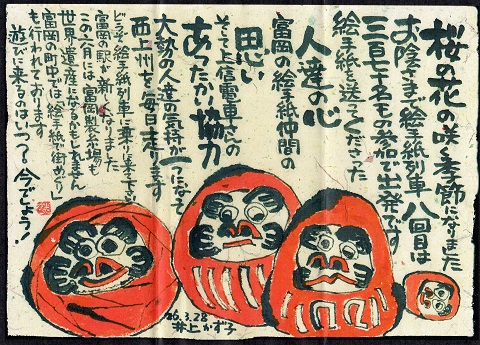 桜の花の咲く季節になりました
お陰さまで絵手紙列車八回目は
三百七十名もの参加で出発です
絵手紙を送ってくださった
人達の心
富岡の絵手紙仲間の
思い
そして上信電車さんの
あったかい協力
大勢の人達の気持が一つになって
西上州を毎日走ります
どうぞ絵手紙列車に乗りに来て下さい
富岡の駅が新しくなりました
この六月には富岡製糸場も
世界遺産になるかもしれません
富岡の町中では「絵手紙で街めぐり」
も行われております
遊びに来るのはいつ?今でしょう!
26.3.28
井上かず子